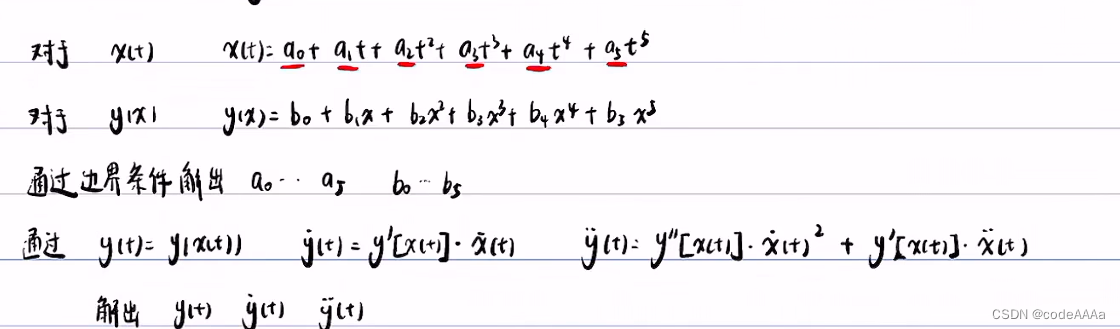 对于 x(t) x(t)= a₀+ a₁t+ a₂t²+ a₃t³+ a₄t⁴ + a₅t⁵
对于 y(x) y(x)= b₀ + b₁x + b₂x²+ b₃x³+ b₄x⁴+ b₃x⁵
通过边界条件解出 a₀·· a₅ b₀··b₅
通过 y(t)= y(x(t)) ẏ(t) = y'[x(t)]·ẋ(t) ÿ(t)= y''[x(t)]·ẋ(t)² + y'[x(t)]·ẍ(t)
解出 y(t) ẏ(t) ÿ(t)
CSDN @codeAAAa